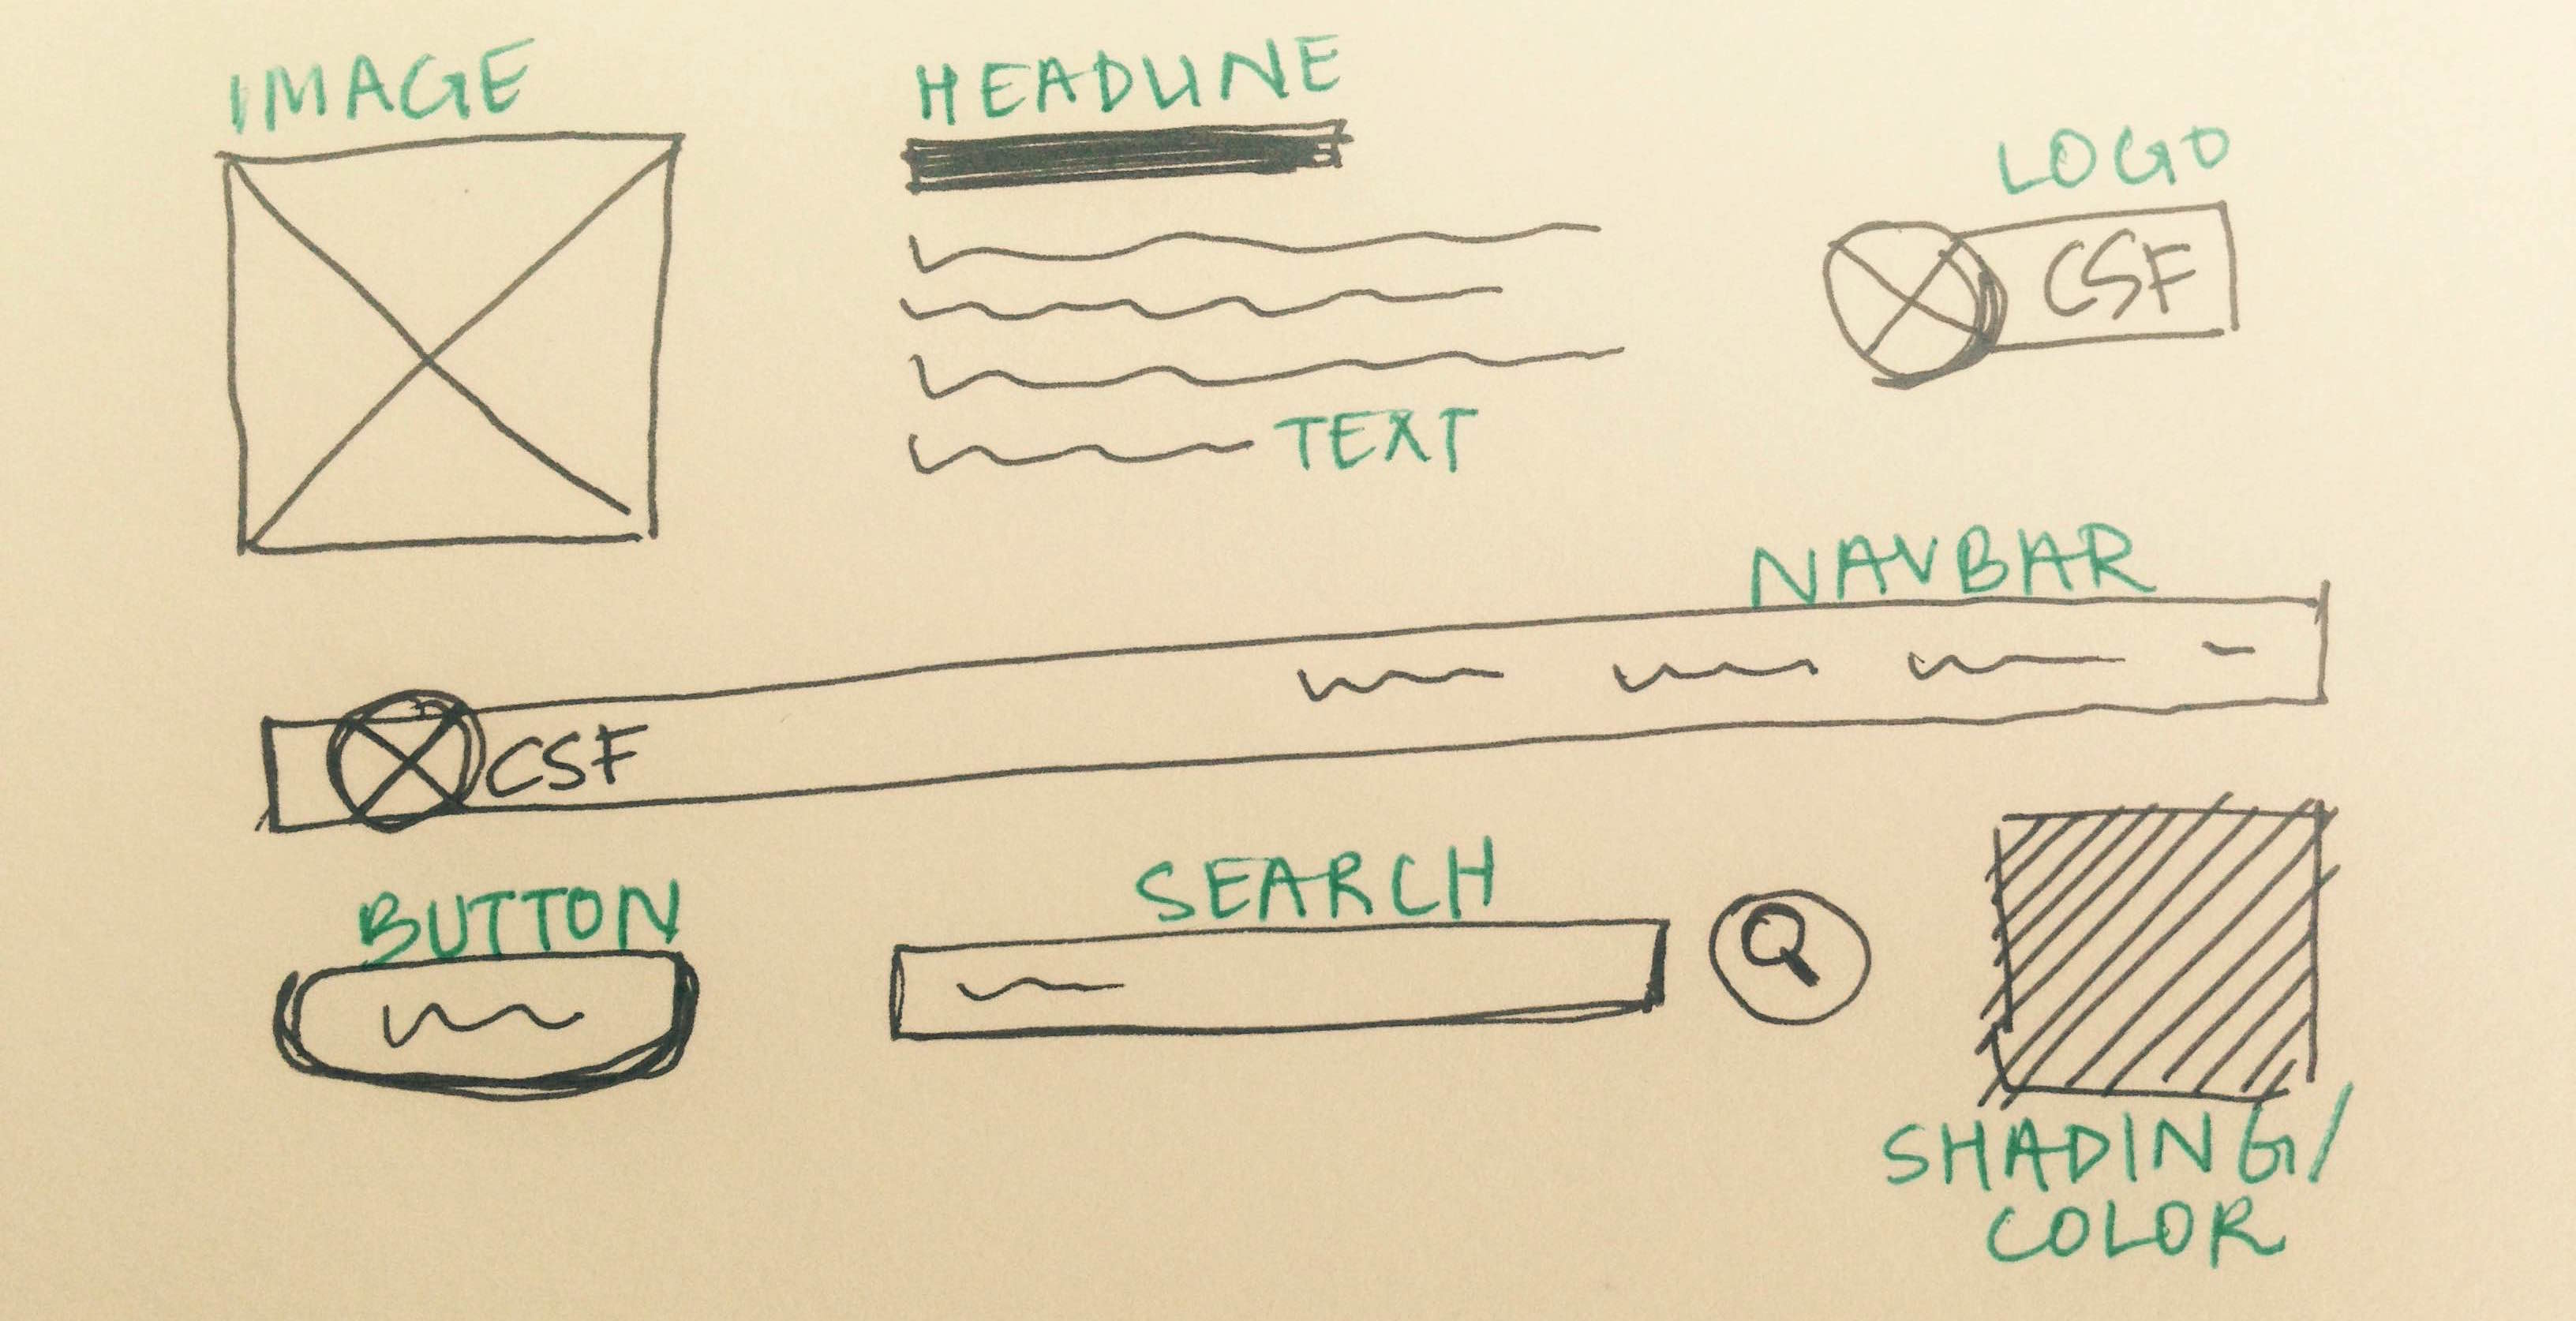 IMAGE
HEADLINE
LOGO
CSF
TEXT
NAVBAR
CSF
BUTTON
SEARCH
SHADING/
COLOR